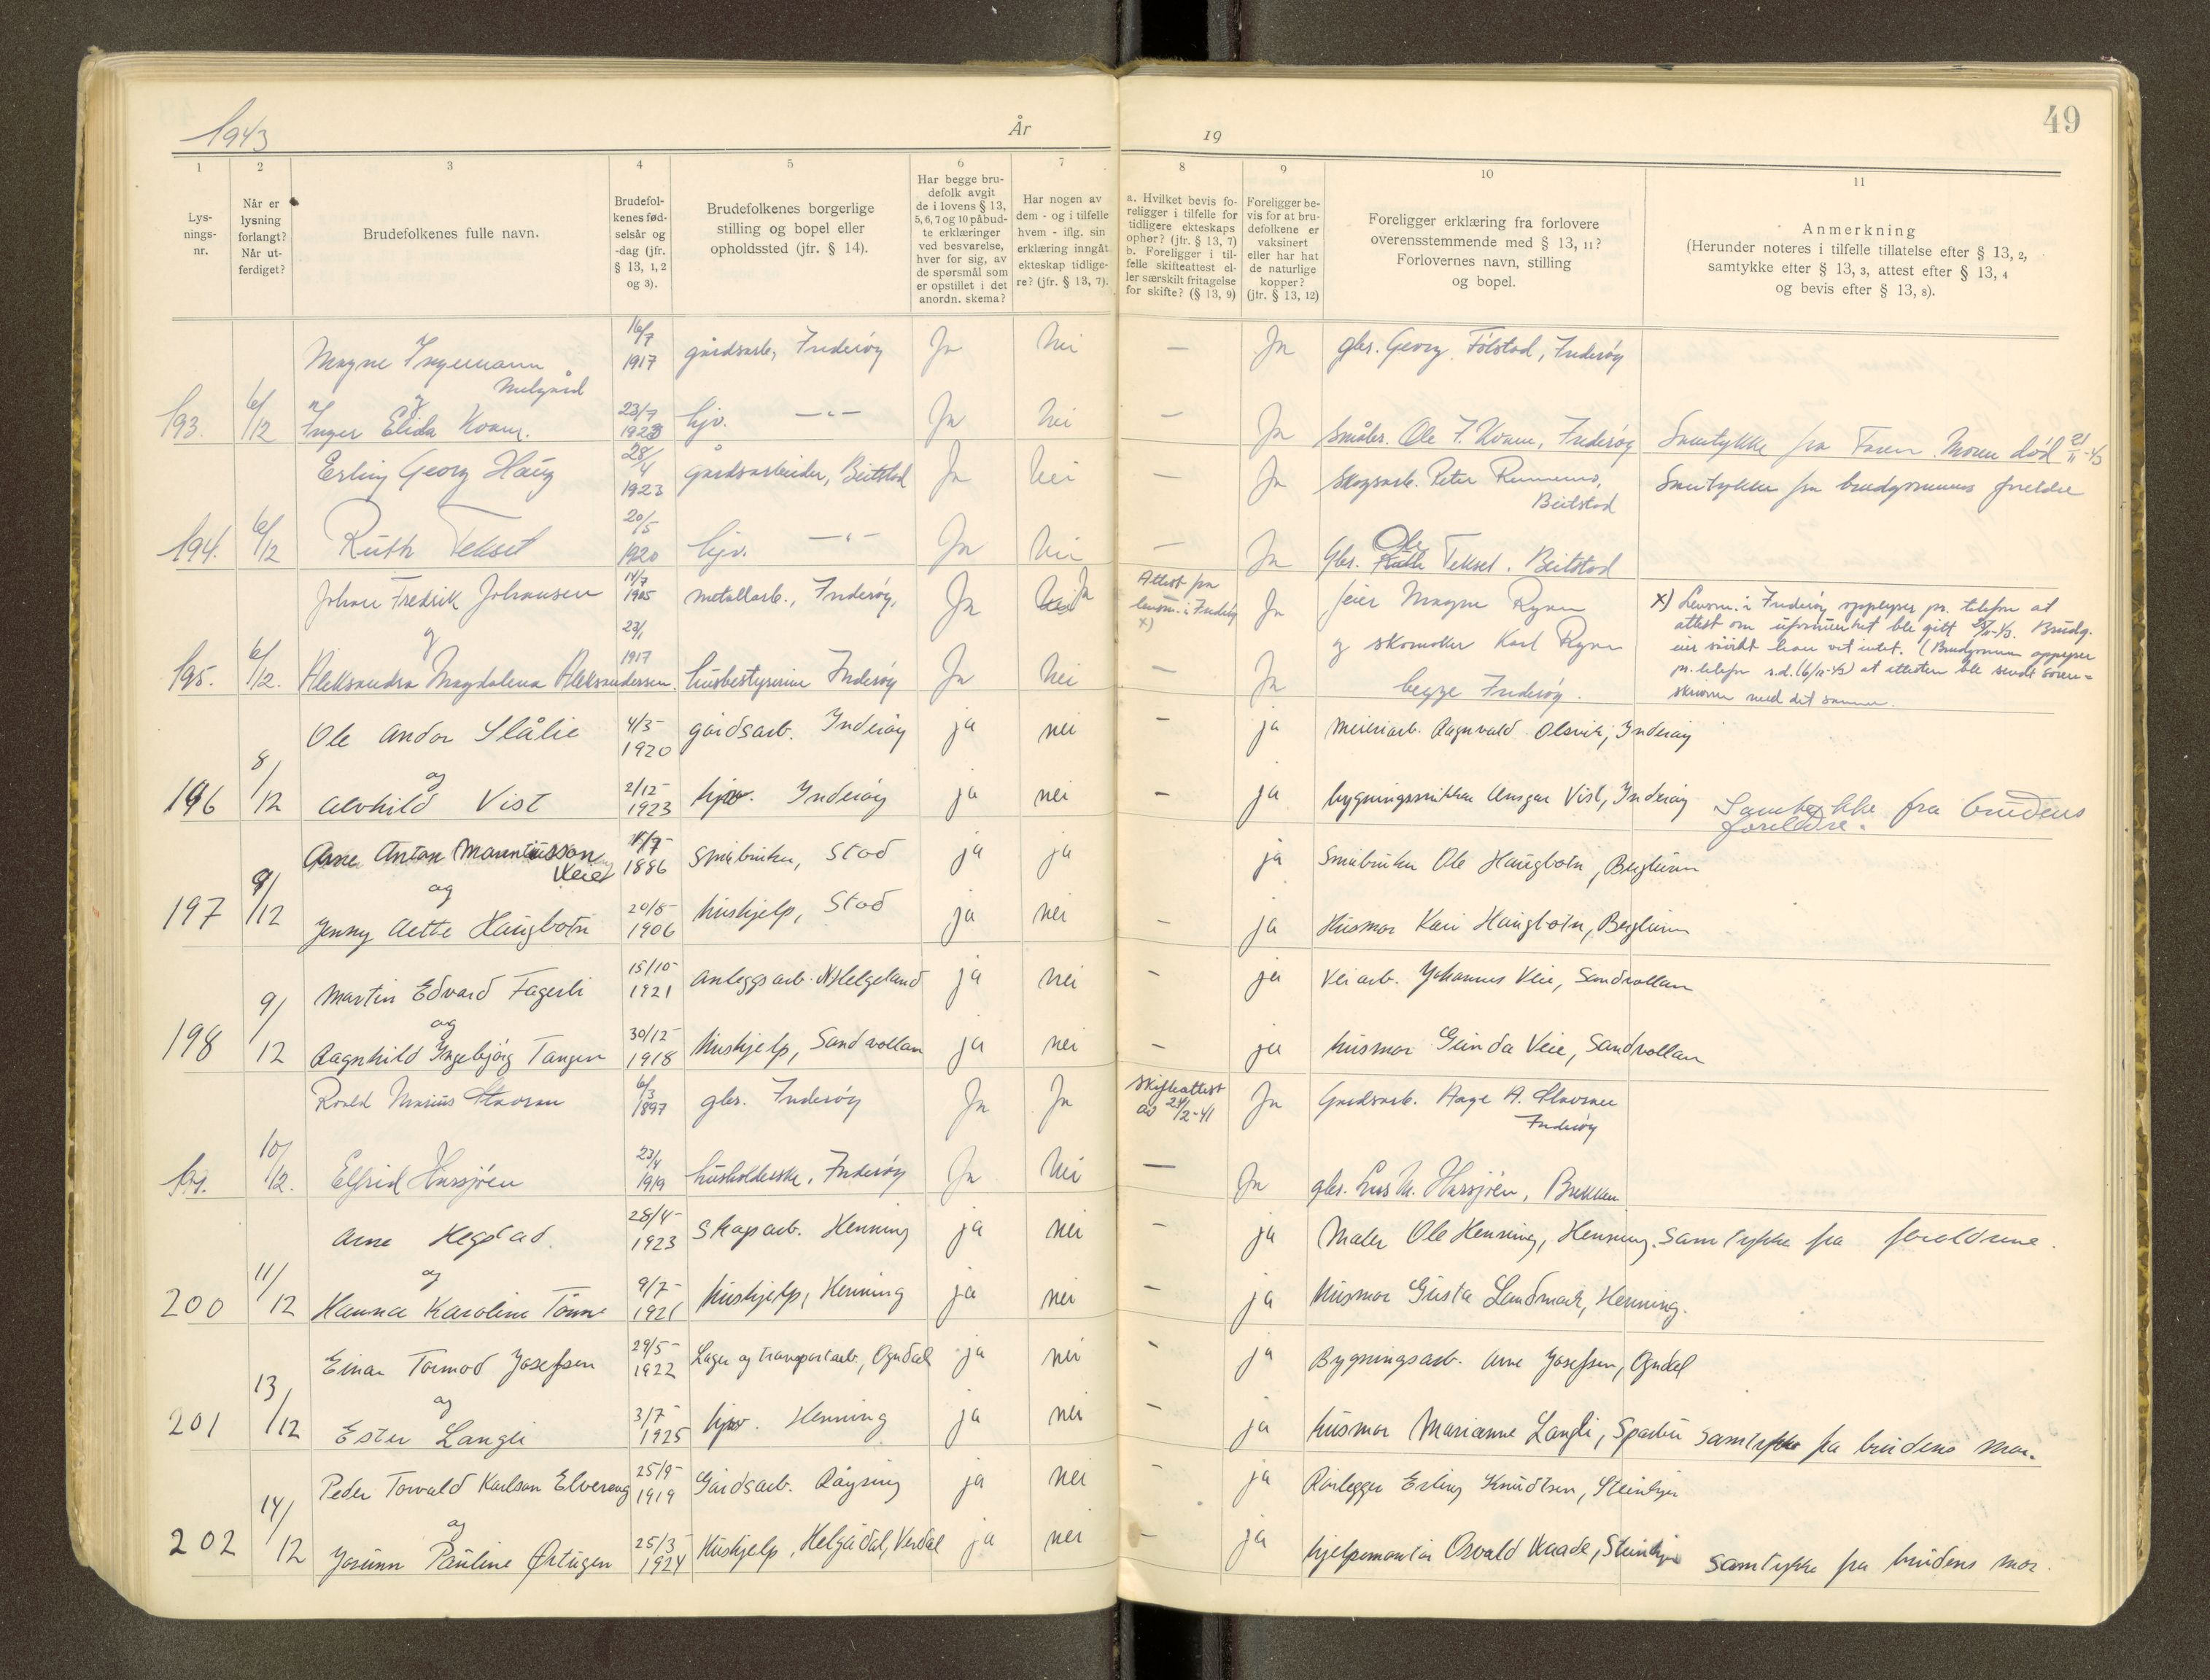 49
1943
År
19
1 2 3 4 5 6 7 8 9 10 11
Lysningsnr.
Når er lysning forlangt? Når utferdiget?
Brudefolkenes fulle navn.
Brudefolkenes fødselsår og -dag (jfr. § 13, 1, 2 og 3).
Brudefolkenes borgerlige stilling og bopel eller opholdssted (jfr. § 14).
Har begge brudefolk avgit de i lovens § 13, 5, 6, 7 og 10 påbudte erklæringer ved besvarelse, hver for sig, av de spørsmål som er opstillet i det anordn. skema?
Har nogen av dem - og i tilfelle hvem - iflg. sin erklæring inngåt ekteskap tidligere? (jfr. § 13, 7).
a. Hvilket bevis foreligger i tilfelle for tidligere ekteskaps ophør? (jfr. § 13, 7) b. Foreligger i tilfelle skifteattest eller særskilt fritagelse for skifte? (§ 13, 9)
Foreligger bevis for at brudefolkene er vaksinert eller har hat de naturlige kopper? (jfr. § 13, 12)
Foreligger erklæring fra forlovere overensstemmende med § 13, 11? Forlovernes navn, stilling og bopel.
Anmerkning (Herunder noteres i tilfelle tillatelse efter § 13, 2, samtykke efter § 13, 3, attest efter § 13, 4 og bevis efter § 13, 8).
Magne Ingemann 16/7 1917 gårdsarb., Inderöy Ja Nei — Ja gbr. Georg Fölstad, Inderöy
og
193. 6/12 Inger Elida Koam. 23/7 1923 hjv. —"— Ja Nei — Ja Småbr. Ole J. Koam, Inderöy Samtykke fra Faren. Moren död 21/11-43
Erling Georg Haug 28/4 1923 gårdsarbeider, Beitstad Ja Nei — Ja Skogsarb. Peter Beitstad Samtykke fra brudgommens foreldre
194. 6/12 Ruth Tekset 20/5 1920 hjv. —"— Ja Nei — Ja Gbr. Ole Tekset. Beitstad
Johan Fredrik Johansen 14/7 1905 metallarb., Inderöy, Ja Ja Attest fra lensm. i Inderöy x) Ja feier Magne Ryan
x) Lensm. i Inderöy opplyser pr. telefon at
attest om uformuenhet ble gitt Brudg.
eier særskilt
pr. telefon s.d. (6/12-43) at attesten ble sendt soren=
skriveren med det samme.
og
195. 6/12. Aleksandra Magdalena Aleksandersen. 23/1 1917 husbestyrerinne Inderöy Ja Nei — Ja og skomaker Karl Ryan begge Inderöy.
Ole Andor Slålie 4/3- 1920 gårdsarb. Inderöy ja nei — ja meieriarb. Ragnvald Olsvik, Inderöy
og
196 8/12 Alvhild Vist 2/12- 1923 hjv. Inderöy ja nei — ja bygningssnikker Ansgar Vist, Inderöy Samtykke fra brudens foreldre.
Arne Anton Marentiusson Veie 1886 småbruker, Stod ja ja ja Småbruker Ole Haugbotn, Berglunn
og
197 9/12 Jenny Aette Haugbotn 20/8- 1906 hushjelp, Stod ja nei — ja Husmor Kari Haugbotn, Berglunn
Martin Edvard Fagerli 15/10- 1921 anleggsarb. N. Helgeland ja nei — ja Veiarb. Johannes Veie, Sandvollan
og
198 9/12 Ragnhild Ingebjörg Tangen 30/12- 1918 hushjelp, Sandvollan ja nei — ja husmor Gunda Veie, Sandvollan
Roald Marius 6/3 1897 gbr. Inderöy Ja Ja Skifteattest av 24/2-41 Ja Gardsarb. Aage A. Inderöy
199. 10/12. Elfrid Hursjöen 23/4 1919 husholderske, Inderöy Ja Nei — Ja gbr. Hursjöen, Brekken
Arne Hegstad. 28/4- 1923 Skogsarb. Henning ja nei — ja Maler Ole Henning, Henning. Samtykke fra foreldrene.
og
200 11/12 Hanna Karoline Tönne 9/7- 1921 hushjelp, Henning ja nei — ja husmor Gusta Landmark, Henning.
Einar Tormod Josefsen 29/5- 1922 Lager og transportarb., Ogndal ja nei — ja Bygningsarb. Arne Josefsen, Ogndal
og
201 13/12 Ester Langli 3/7- 1925 hjv. Henning ja nei — ja husmor Marianne Langli, Sparbu Samtykke fra brudens mor.
Peder Torvald Karlson Elvereng 25/9- 1919 Gårdsarb. Röysing ja nei — ja Rörlegger Erling Knudtsen, Steinkjer
og
202 14/12 Jorunn Pauline Örtugen 25/3- 1924 Hushjelp, Helgådal, Verdal ja nei — ja hjelpemontör Osvald Waade, Steinkjer Samtykke fra brudens mor.